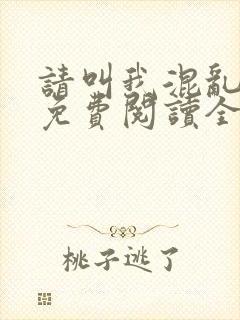 請叫我混亂
免費閱讀全
桃子逃了